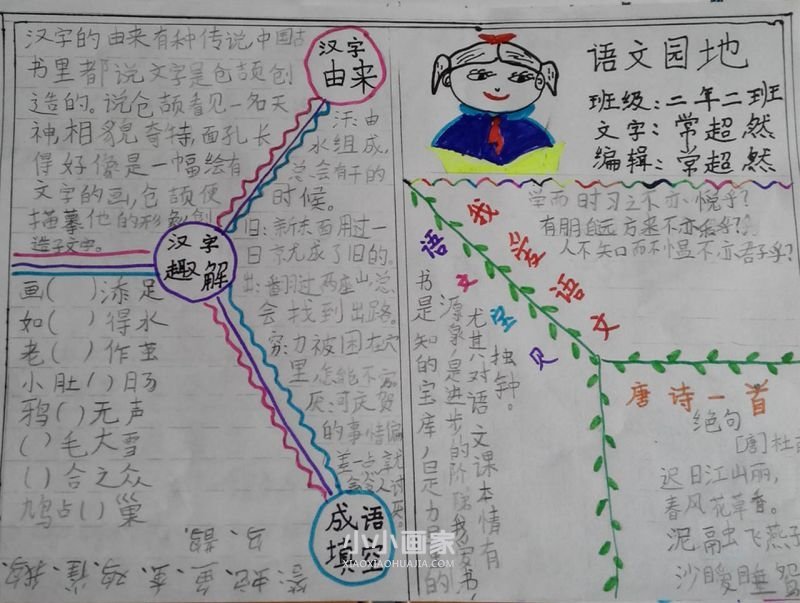 汉字的由来有种传说,中国古
书里都说文字是仓颉创
造的。说仓颉看见一名天
神,相貌奇特,面孔长
得好像是一幅绘有
文字的画,仓颉便
描摹他的形象,创
造了文字。
汉字
由来
汉字
趣解
汗:由
水组成,
总会有干的
时候。
旧:新东西用过一
日就成了旧的。
出:翻过两座山,总
会找到出路。
穷:力被困在穴
里,怎能不穷。
厌:可庆贺
的事情偏
差一点,就
会令人讨厌。
画( )添足
如( )得水
老( )作茧
小肚( )肠
鸦( )无声
( )毛大雪
( )合之众
鸠占( )巢
成语
填空
答:蛇、鱼、蚕、鸡、雀、鹅、
乌、鹊。
语文园地
班级:二年二班
文字:常超然
编辑:常超然
学而时习之不亦悦乎?
有朋自远方来不亦乐乎?
人不知而不愠不亦君子乎?
我学语文
语文宝贝
书是知的宝库,是力的
源泉,是进步的阶梯,我安书,
尤其对语文课本情有
独钟。
唐诗一首
绝句
[唐]杜甫
迟日江山丽,
春风花草香。
泥融虫飞燕子
沙暖睡鸳
小小画家
XIAOXIAOHUAJIA.COM